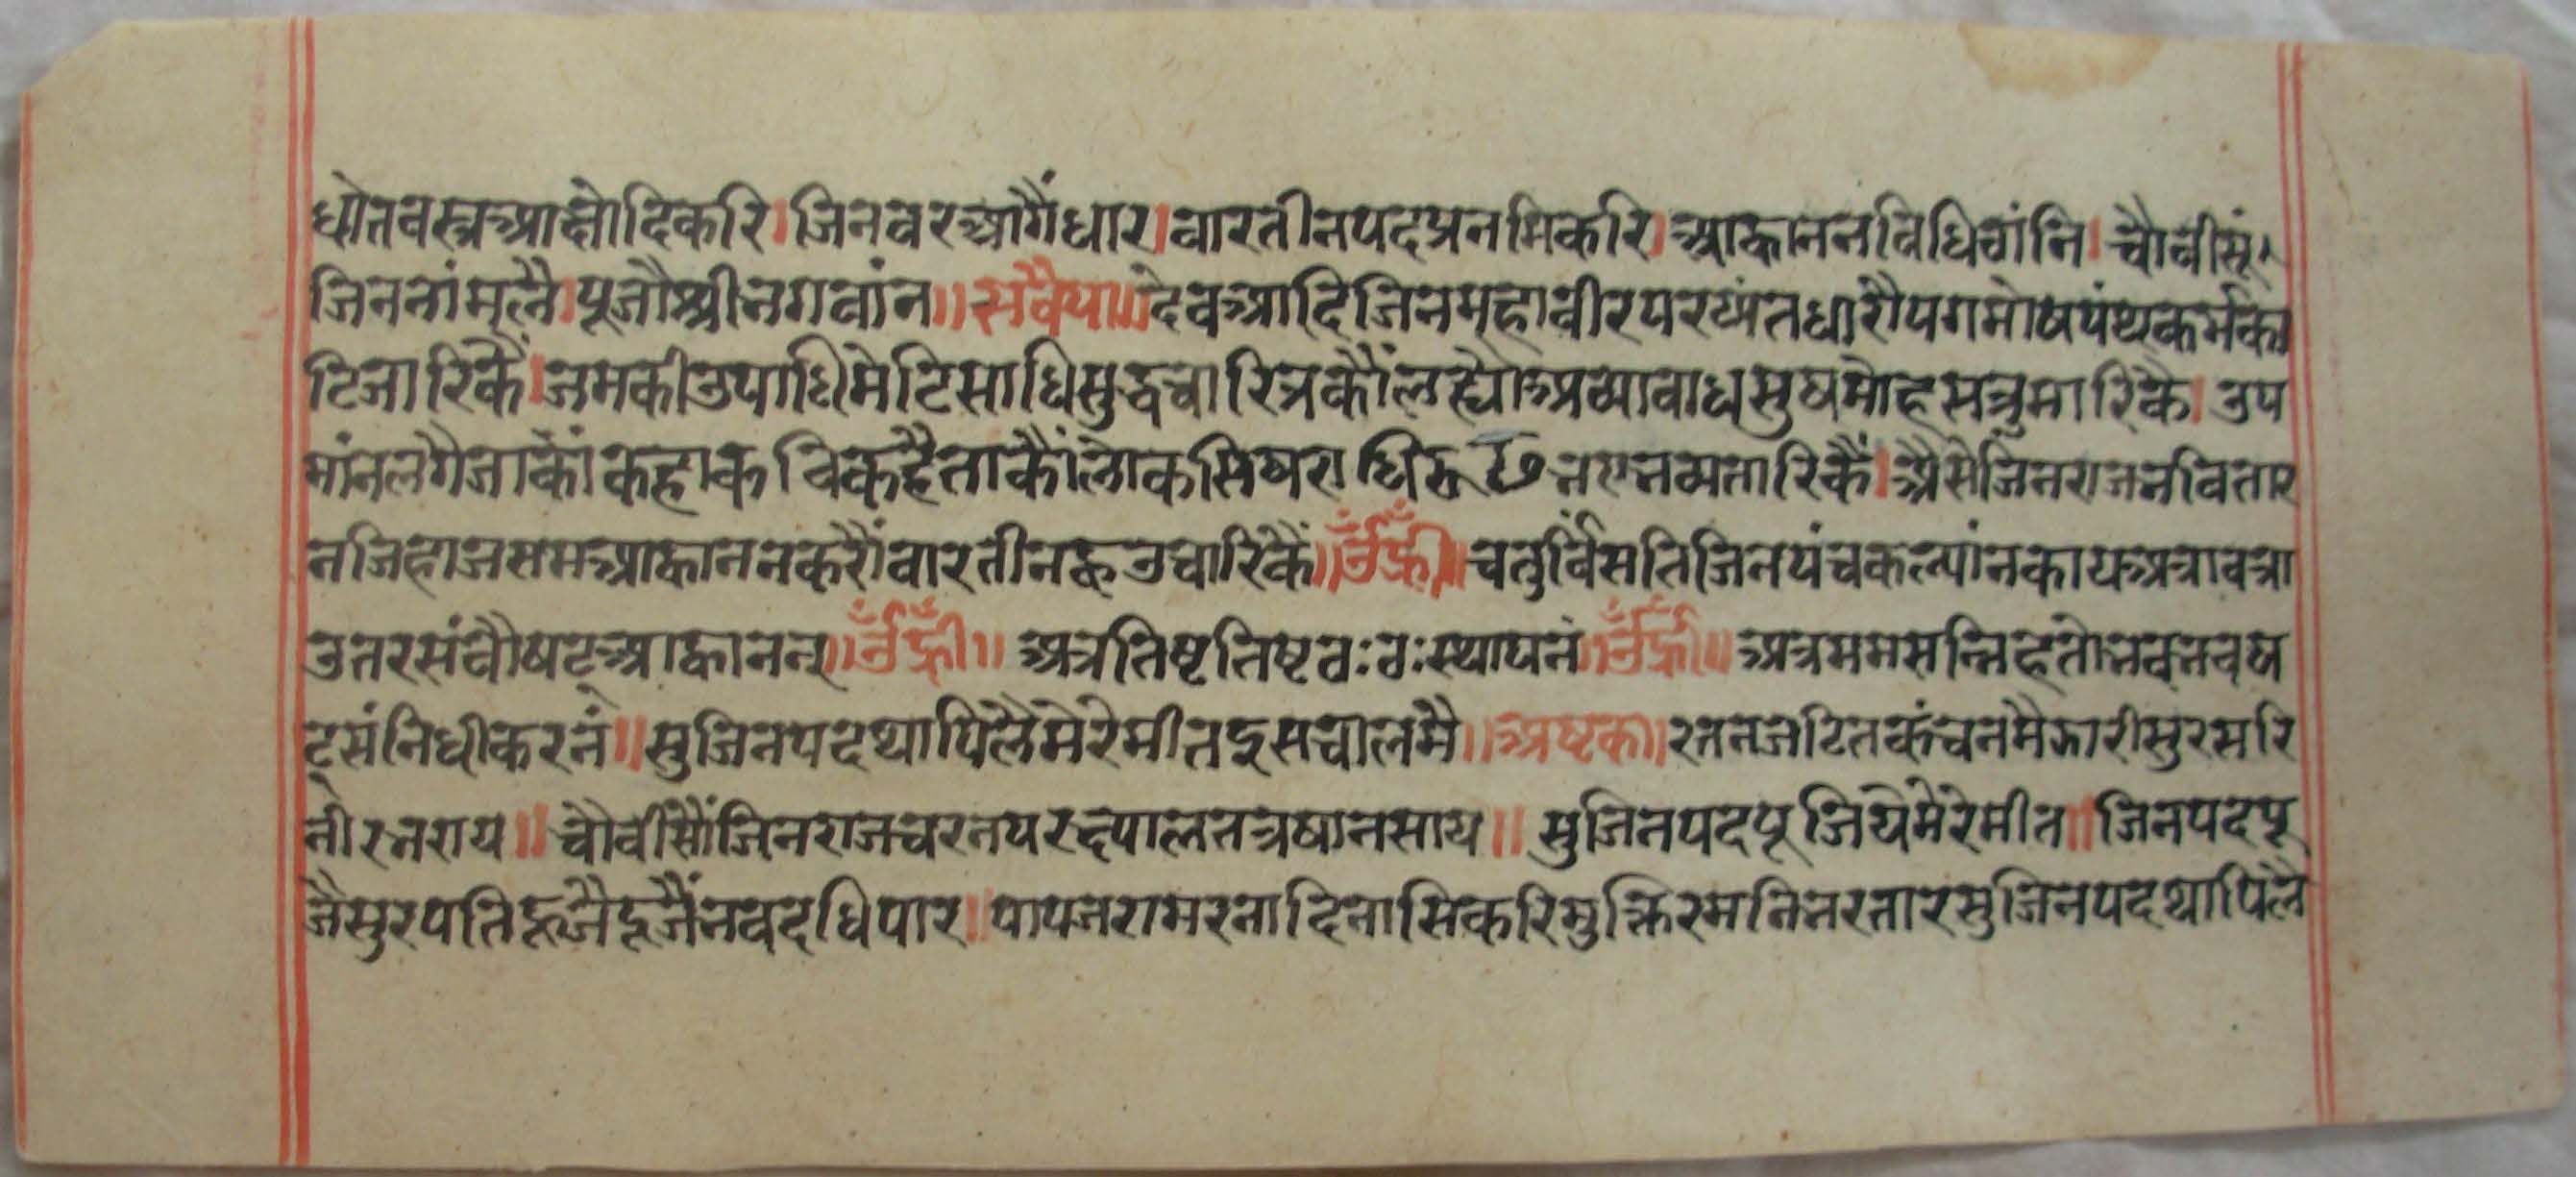 धोतवस्त्रआछोदिकरि।जिनवरआगैंधार।वारतीनपदप्रनमिकरि।आह्वाननविधिठांनि।चौवीसूं।
जिननांमलै।पूजौश्रीभगवांन॥सवैया॥देवआदिजिनमहावीरपरय्यंतधारौपगमोषपंथकर्मका
टिजारिकैं।जमकीउपाधिमेटिसाधिसुद्धचारित्रकौंलह्यौअव्यावाधसुषमोहसत्रुमारिकै।उप
मांनलगैजाकौंकहाकविकहैताकौंलोकसिषरा भएभव्यतारिकैं।औसैजिनराजभवितार
नजिहाजसमआह्वाननकरौंवारतीनऊउचारिकैं॥ॐह्रीं॥चतुर्विंसतिजिनपंचकल्यांनकायअत्रावत्रा
उतरसंवौषट्आह्वाननं॥ॐह्रीं॥अत्रतिष्टतिष्टठःठःस्थापनं॥ॐह्रीं॥अत्रममसन्निहतोभवभवष
ट्संनिधीकरनं॥सुजिनपदथापिलैमेरेमीतहसचालमै॥अष्टक॥रतनजटितकंचनमैझारीसुरसरि
नीरभराय॥चौवीसौंजिनराजचरनपरढालतत्रषानसाय॥सुजिनपदपूजियेमेरेमीत॥जिनपदपू
जैसुरपतिहूजैहूजैंभवदधिपार॥पापजरामरनादिनासिकरिमुक्तिरमनिभरतारसुजिनपदथापिलै